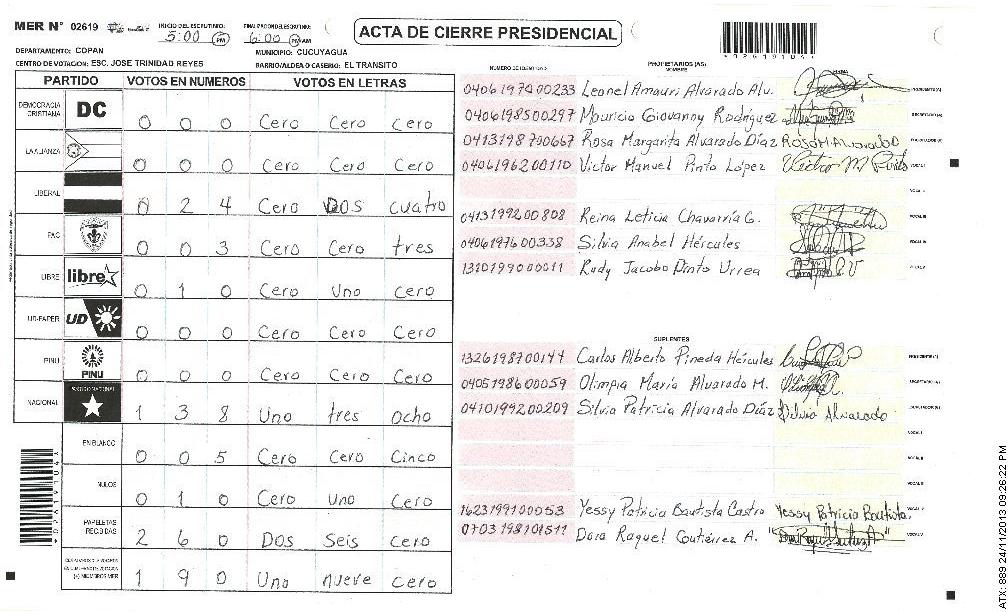 MER N° 02619 INICIO DEL ESCRUTINIO: 5:00 PM FINALIZACION DEL ESCRUTINIO: 6:00 PM AM
ACTA DE CIERRE PRESIDENCIAL
DEPARTAMENTO: COPAN MUNICIPIO: CUCUYAGUA
CENTRO DE VOTACION: ESC. JOSE TRINIDAD REYES BARRIO/ALDEA O CASERIO: EL TRANSITO
PARTIDO VOTOS EN NUMEROS VOTOS EN LETRAS
DEMOCRACIA CRISTIANA DC 0 0 0 Cero Cero Cero
LA ALIANZA 0 0 0 Cero Cero Cero
LIBERAL 0 2 4 Cero Dos cuatro
PAC 0 0 3 Cero Cero tres
LIBRE libre 0 1 0 Cero Uno Cero
UD-FAPER UD 0 0 0 Cero Cero Cero
PINU PINU 0 0 0 Cero Cero Cero
NACIONAL 1 3 8 Uno tres ocho
EN BLANCO 0 0 5 Cero Cero Cinco
NULOS 0 1 0 Cero uno Cero
PAPELETAS RECIBIDAS 2 6 0 Dos Seis cero
(+) MIEMBROS MER 1 9 0 Uno nueve cero
PROPIETARIOS (AS)
NOMBRE
0406197400233 Leonel Amauri Alvarado Alv.
0406198500297 Mauricio Giovanny Rodríguez
0413198700667 Rosa Margarita Alvarado Díaz Rosa M Alvarado
0406196200110 Victor Manuel Pinto López Victor M Pinto
0413199200808 Reina Leticia Chavarría G.
0406197600338 Silvia Anabel Hércules
1310199000011 Rudy Jacobo Pinto Urrea
SUPLENTES
1326198700144 Carlos Alberto Pineda Hércules
0405198600059 Olimpia María Alvarado M.
0410199200209 Silvia Patricia Alvarado Díaz Silvia Alvarado
1623199100053 Yessy Patricia Bautista Castro Yessy Patricia Bautista.
0703198101511 Dora Raquel Gutiérrez A.
ATX: 889 24/11/2013 09:26:22 PM